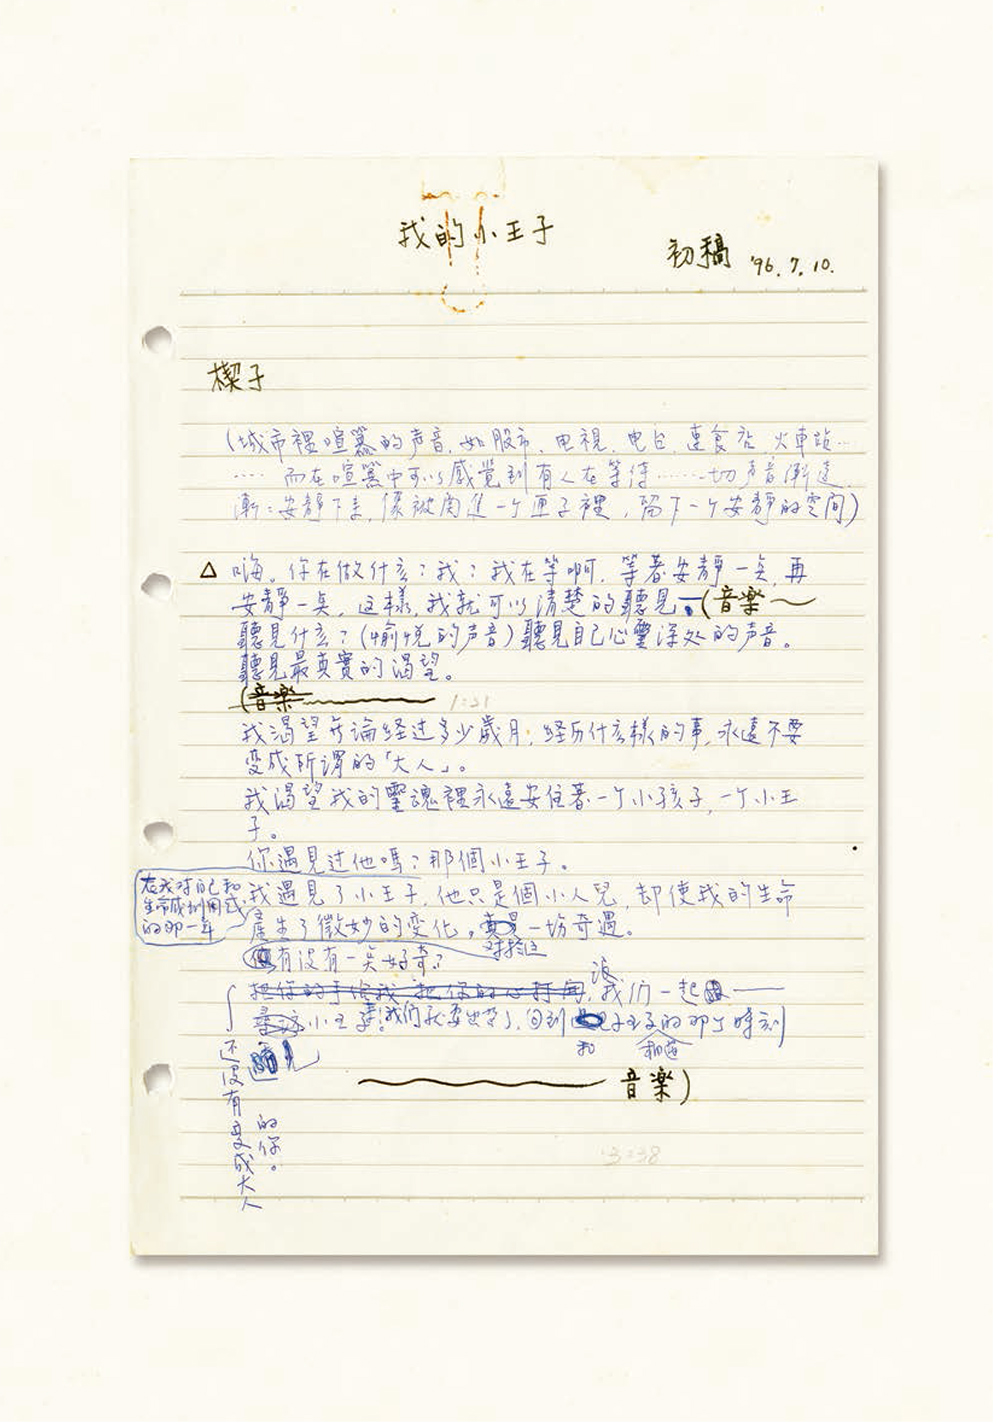 我的小王子
初稿 '96.7.10.
楔子
(城市裡喧囂的声音,如股市、电視、电台、速食店、火車站…
…… 而在喧囂中可以感覺到有人在等待………一切声音漸遠,
漸=安靜下去,像被関進一个匣子裡,留下一个安靜的空间)
△ 嗨。你在做什么?我?我在等啊,等著安靜一矣,再
安靜一矣,这樣,我就可以清楚的聽見 (音樂
聽見什么?(愉悅的声音)聽見自己心靈深处的声音。
聽見最真實的渴望。
(音樂 1:21
我渴望無論経过多少歲月,経历什么樣的事,永遠不要
变成所谓的「大人」。
我渴望我的靈魂裡永遠安住著一个小孩子,一个小王
子。
你遇見过他嗎?那個小王子。
在我对自己和
生命感到困惑
的那一年
我遇見了小王子,他只是個小人兒,却使我的生命
產生了微妙的变化, 一场奇遇。
有没有一矣好奇?
把你的手给我,把你的心打開,讓我们一起
小王子。我们就要出発了,回到 小王子的那个時刻
和 相遇
还没有变成大人
的你。
音樂)
3:38